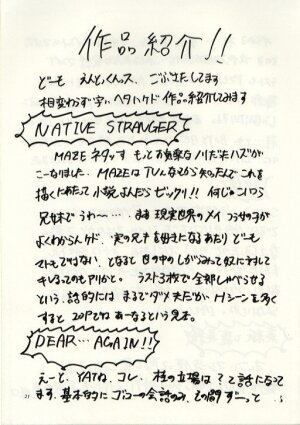 作品紹介!!
どーも えんとくんっス、ごぶさたしてます
相変わらず字ィヘタハケド作品紹介してみます
NATIVE STRANGER
MAZEネタっす もっとお気楽なノリだったハズが
こーなりました、MAZEはTVんなでから知ったんでこれを
描くにあたって小説よんだらビックリ!! 何じゃコイツら
兄妹でうわ〜… まあ現実世界のメイっつう女の子が
よくわからんケド、実の兄を好きになるあたり どーも
マトモではない、となると 世の中のしがらみって奴に対して
キレるってのもアリかと。 ラスト3枚で全部しゃべらせる
という、話的には まるでダメ夫だが Hシーンを多く
すると 20Pでねあーなるという見本。
DEAR… AGAIN!!
えーと、YATね、コレ、桂の立場は?て話になって
ます、基本的にゴローの会話のみ、その間ずーっと